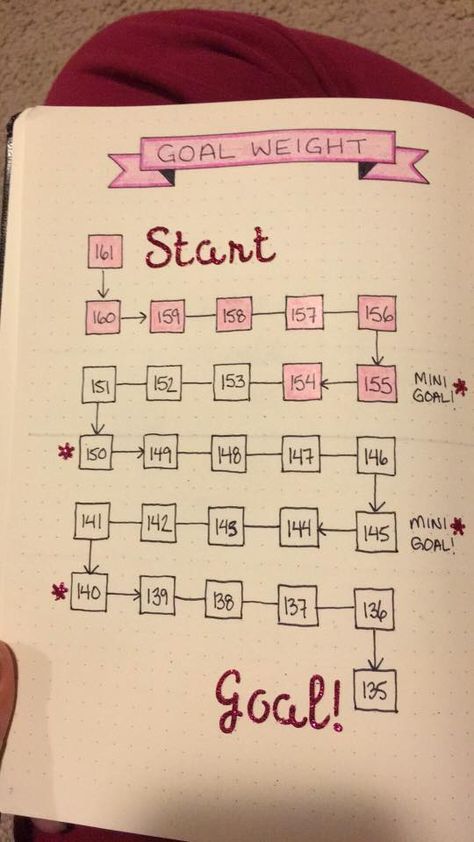 GOAL WEIGHT
161 Start
160 159 158 157 156
151 152 153 154 155 MINI GOAL! *
* 150 149 148 147 146
141 142 143 144 145 MINI GOAL! *
* 140 139 138 137 136
Goal! 135